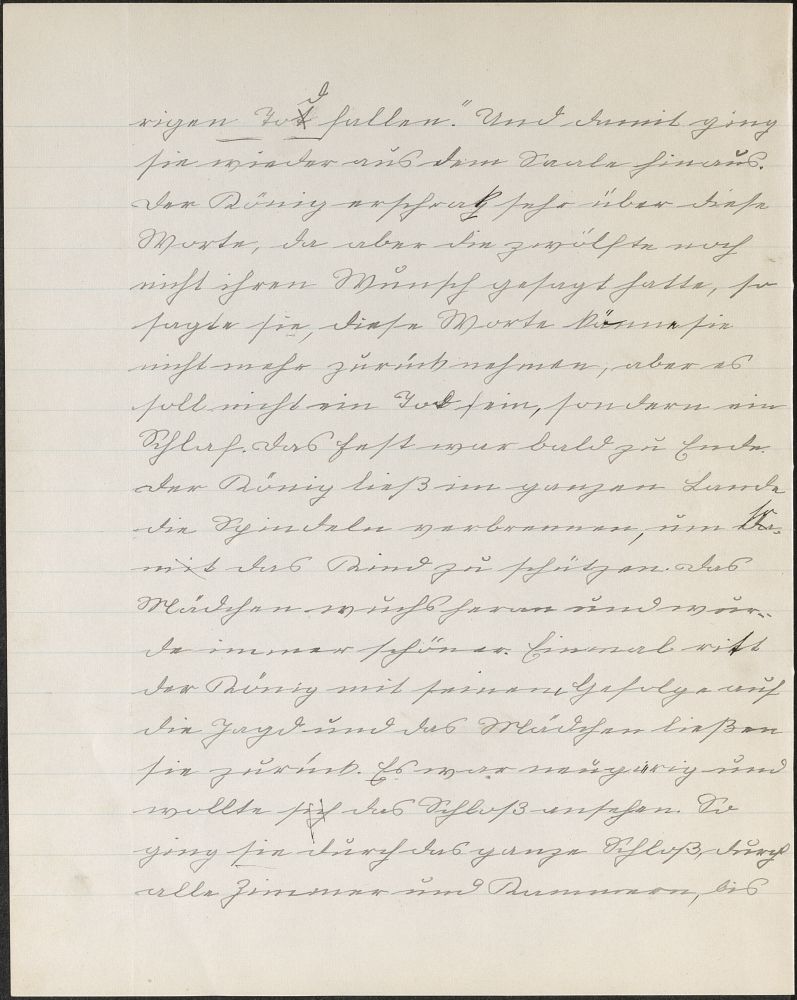 rigen Tod fallen." Und damit ging
sie wieder aus dem Saale hinaus.
Der König erschrak sehr über diese
Worte, da aber die zwölfte noch
nicht ihren Wunsch gesagt hatte, so
sagte sie, diese Worte könne sie
nicht mehr zurück nehmen, aber es
soll nicht ein Tod sein, sondern ein
Schlaf. Das Fest war bald zu Ende.
Der König ließ im ganzen Lande
die Spindeln verbrennen, um so
das Kind zu schützen. Das
Mädchen wuchs heran und wur-
de immer schöner. Einmal ritt
der König mit seinem Gefolge auf
die Jagd und das Mädchen ließen
sie zurück. Es war neugierig und
wollte sich das Schloß ansehen. So
ging sie durch das ganze Schloß, durch
alle Zimmer und Kammern, bis